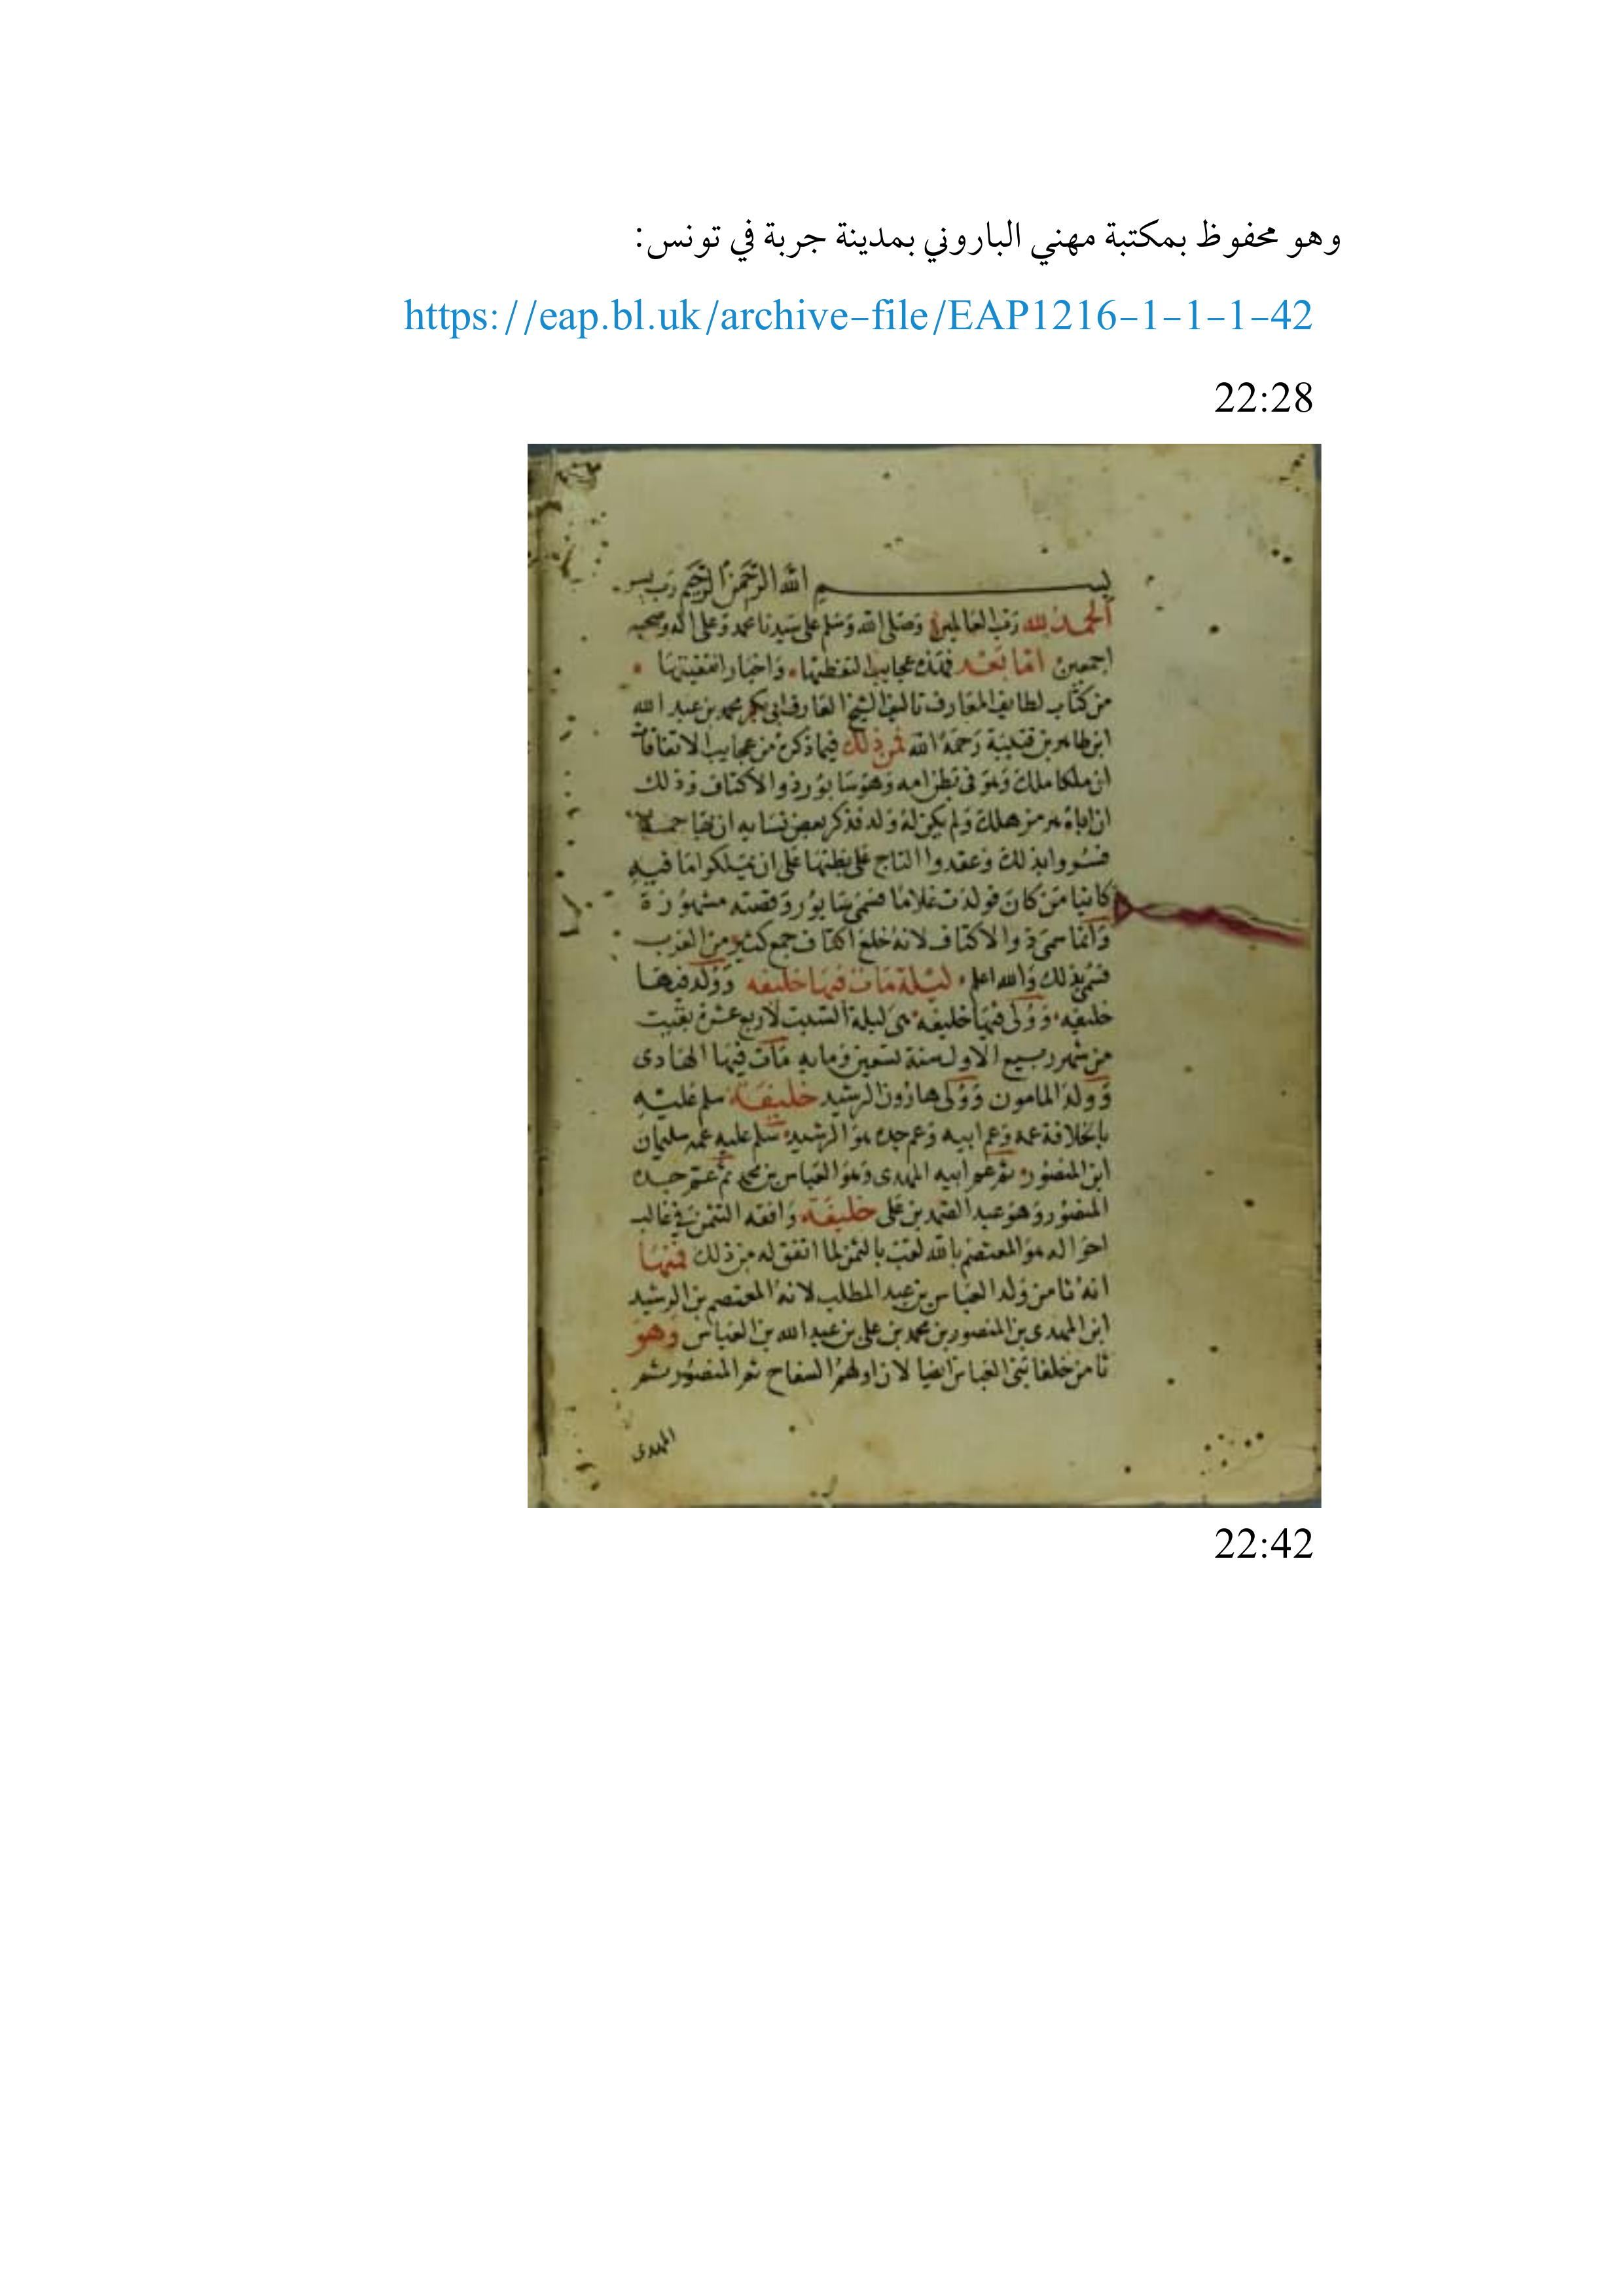 وهو محفوظ بمكتبة مهني الباروني بمدينة جربة في تونس:
https://eap.bl.uk/archive-file/EAP1216-1-1-1-42
22:28
بسم الله الرحمن الرحيم رب يسر
الحمد لله رب العالمين وصلى الله وسلم على سيدنا محمد وعلى اله وصحبه
اجمعين اما بعد فهذه عجايب التقطتها واخبار انتقيتها
من كتاب لطايف المعارف تاليف الشيخ العارف ابي بكر محمد بن عبد الله
ابن طاهر بن قتيبة رحمه الله فمن ذلك فيما ذكره من عجايب الاتفاقات
ان ملكا ملك وهو في بطن امه وهو سابور ذو الاكتاف وذلك
ان اباه هرمز هلك ولم يكن له ولد فذكر بعض نسايه ان بها حملا
فسروا بذلك وعقدوا التاج على بطنها على ان يملكوا ما فيه
كاينا من كان فولدت غلاما فسمي سابور وقصته مشهورة
وانما سمي ذو الاكتاف لانه خلع اكتاف جمع كثير من العرب
فسمي بذلك والله اعلم ليلة مات فيها خليفه وولد فيها
خليفه وولى فيها خليفه هي ليلة السبت لاربع عشرة بقيت
من شهر ربيع الاول سنة تسعين ومايه مات فيها الهادى
وولد المامون وولى هارون الرشيد خليفة سلم عليه
بالخلافة عمه وعم ابيه وعم جده هو الرشيد سلم عليه عمه سليمان
ابن المنصور ثم عم ابيه المهدى وهو العباس بن محمد ثم عم جده
المنصور وهو عبد الصمد بن على خليفة وافقه الثمن في غالب
احواله هو المعتصم بالله لقب بالثمن لما اتفق له من ذلك فمنها
انه ثامن ولد العباس بن عبد المطلب لانه المعتصم بن الرشيد
ابن المهدى بن المنصور بن محمد بن على بن عبد الله بن العباس وهو
ثامن خلفا بنى العباس ايضا لان اولهم السفاح ثم المنصور ثم
المهدى
22:42